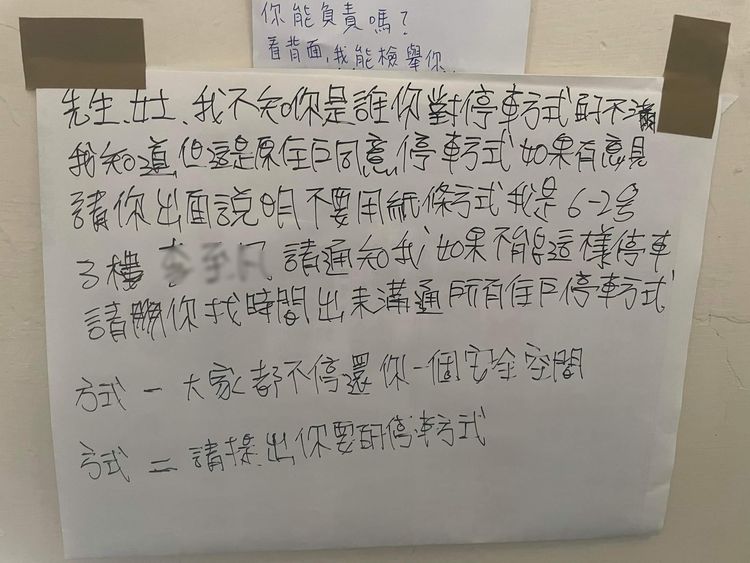 你能負責嗎？
看背面,我能檢舉你.
先生、女士、我不知你是誰你對停車方式的不滿
我知道但這是原住戶同意停車方式如果有意見
請你出面說明不要用紙條方式我是6-2号
3樓 請通知我如果不能這樣停車
請你找時間出來溝通所有住戶停車方式
方式一大家都不停還你一個安全空間
方式二請提出你要的停車方式